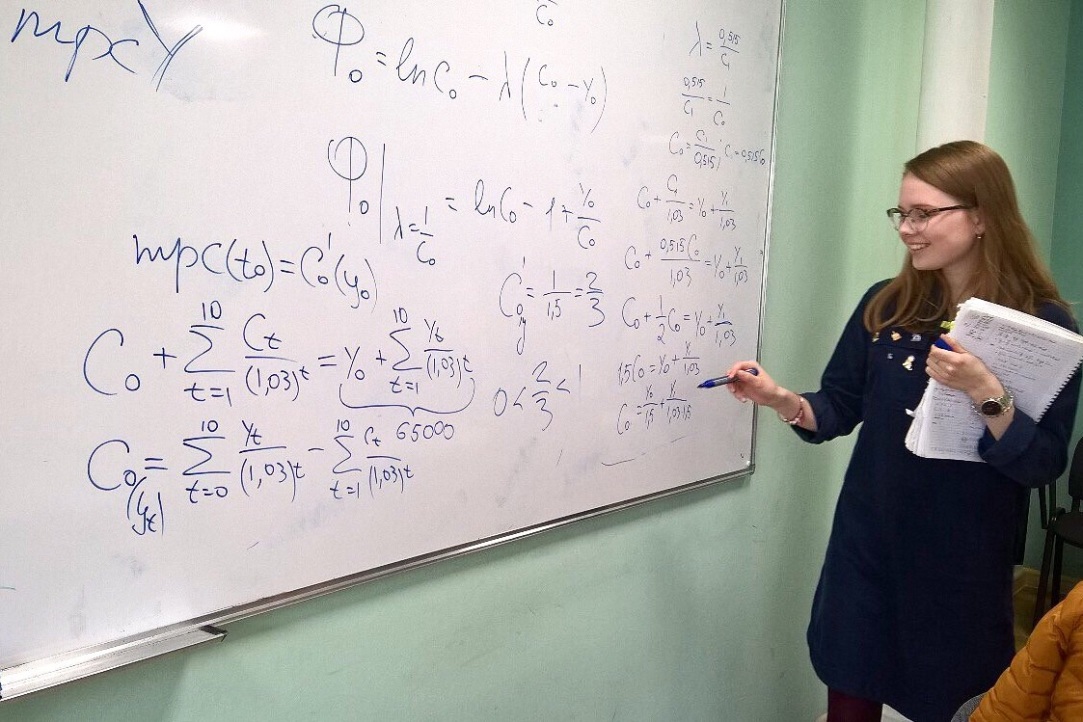 mpcY
Φ₀ = ln C₀ − λ(C₀ − Y₀)
Φ₀|λ=1/C₀ = ln C₀ − 1 + Y₀/C₀
mpc(t₀) = C₀'(y₀)
C₀ + ∑_{t=1}^{10} Cₜ/(1,03)ᵗ = Y₀ + ∑_{t=1}^{10} Yₜ/(1,03)ᵗ
65000
C₀(yₜ) = ∑_{t=0}^{10} Yₜ/(1,03)ᵗ − ∑_{t=1}^{10} Cₜ/(1,03)ᵗ
C₀'y = 1/1,5 = 2/3
0 < 2/3 < 1
C₀
λ = 0,515/C₁
0,515/C₁ = 1/C₀
C₀ = C₁/0,515; C₁ = 0,515C₀
C₀ + C₁/1,03 = Y₀ + Y₁/1,03
C₀ + 0,515C₀/1,03 = Y₀ + Y₁/1,03
C₀ + 1/2 C₀ = Y₀ + Y₁/1,03
1,5C₀ = Y₀ + Y₁/1,03
C₀ = Y₀/1,5 + Y₁/1,03·1,5